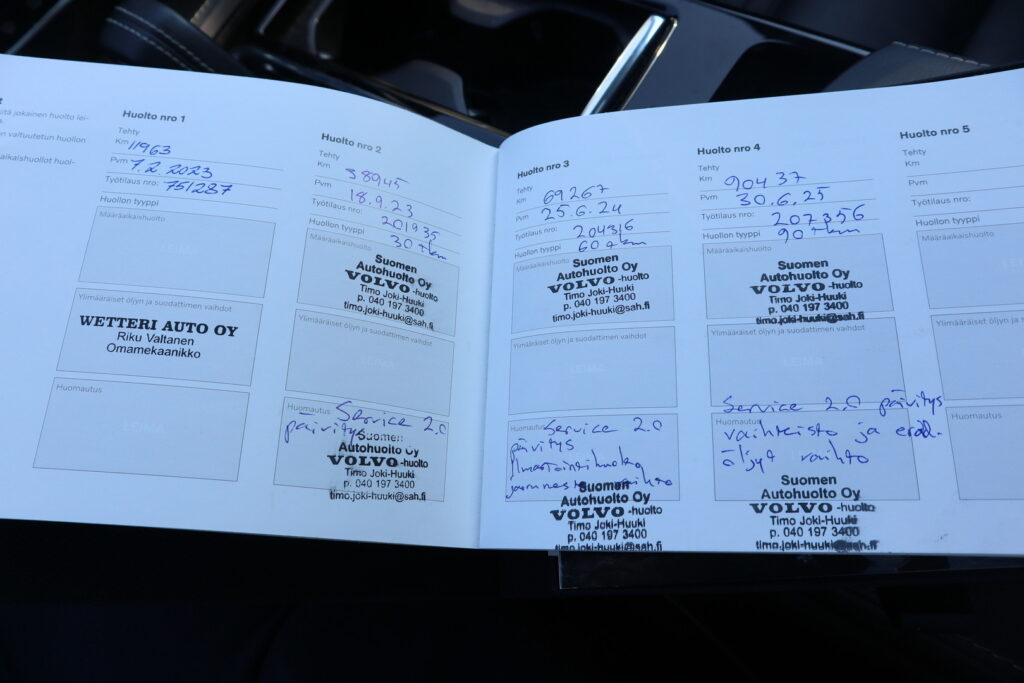 itä jokainen huolto lei-
n valtuutetun huollon
aikaishuollot huol-
Huolto nro 1
Tehty
Km 11963
Pvm 7.2.2023
Työtilaus nro: 751287
Huollon tyyppi
Määräaikaishuolto
Ylimääräiset öljyn ja suodattimen vaihdot
WETTERI AUTO OY
Riku Valtanen
Omamekaanikko
Huomautus
LEIMA
Huolto nro 2
Tehty
Km 38945
Pvm 18.9.23
Työtilaus nro: 201935
Huollon tyyppi 30 tkm
Määräaikaishuolto
Suomen
Autohuolto Oy
VOLVO-huolto
Timo Joki-Huuki
p. 040 197 3400
timo.joki-huuki@sah.fi
Ylimääräiset öljyn ja suodattimen vaihdot
Huomautus Service 2.0
päivitys
Suomen
Autohuolto Oy
VOLVO-huolto
Timo Joki-Huuki
p. 040 197 3400
timo.joki-huuki@sah.fi
Huolto nro 3
Tehty
Km 69267
Pvm 25.6.24
Työtilaus nro: 204316
Huollon tyyppi 60 tkm
Määräaikaishuolto
Suomen
Autohuolto Oy
VOLVO-huolto
Timo Joki-Huuki
p. 040 197 3400
timo.joki-huuki@sah.fi
Ylimääräiset öljyn ja suodattimen vaihdot
LEIMA
Huomautus Service 2.0
päivitys
vaihto
Suomen
Autohuolto Oy
VOLVO-huolto
Timo Joki-Huuki
p. 040 197 3400
timo.joki-huuki@sah.fi
Huolto nro 4
Tehty
Km 90437
Pvm 30.6.25
Työtilaus nro: 207356
Huollon tyyppi 90 tkm
Määräaikaishuolto
Suomen
Autohuolto Oy
VOLVO-huolto
Timo Joki-Huuki
p. 040 197 3400
timo.joki-huuki@sah.fi
Ylimääräiset öljyn ja suodattimen vaihdot
LEIMA
Service 2.0 päivitys
Huomautus
vaihteisto ja
öljyt vaihto
Suomen
Autohuolto Oy
VOLVO-huolto
Timo Joki-Huuki
p. 040 197 3400
timo.joki-huuki@sah.fi
Huolto nro 5
Tehty
Km
Pvm
Työtilaus nro:
Huollon tyyppi
Määräaikaishuolto
Ylimääräiset öljyn ja suod
Huomautus